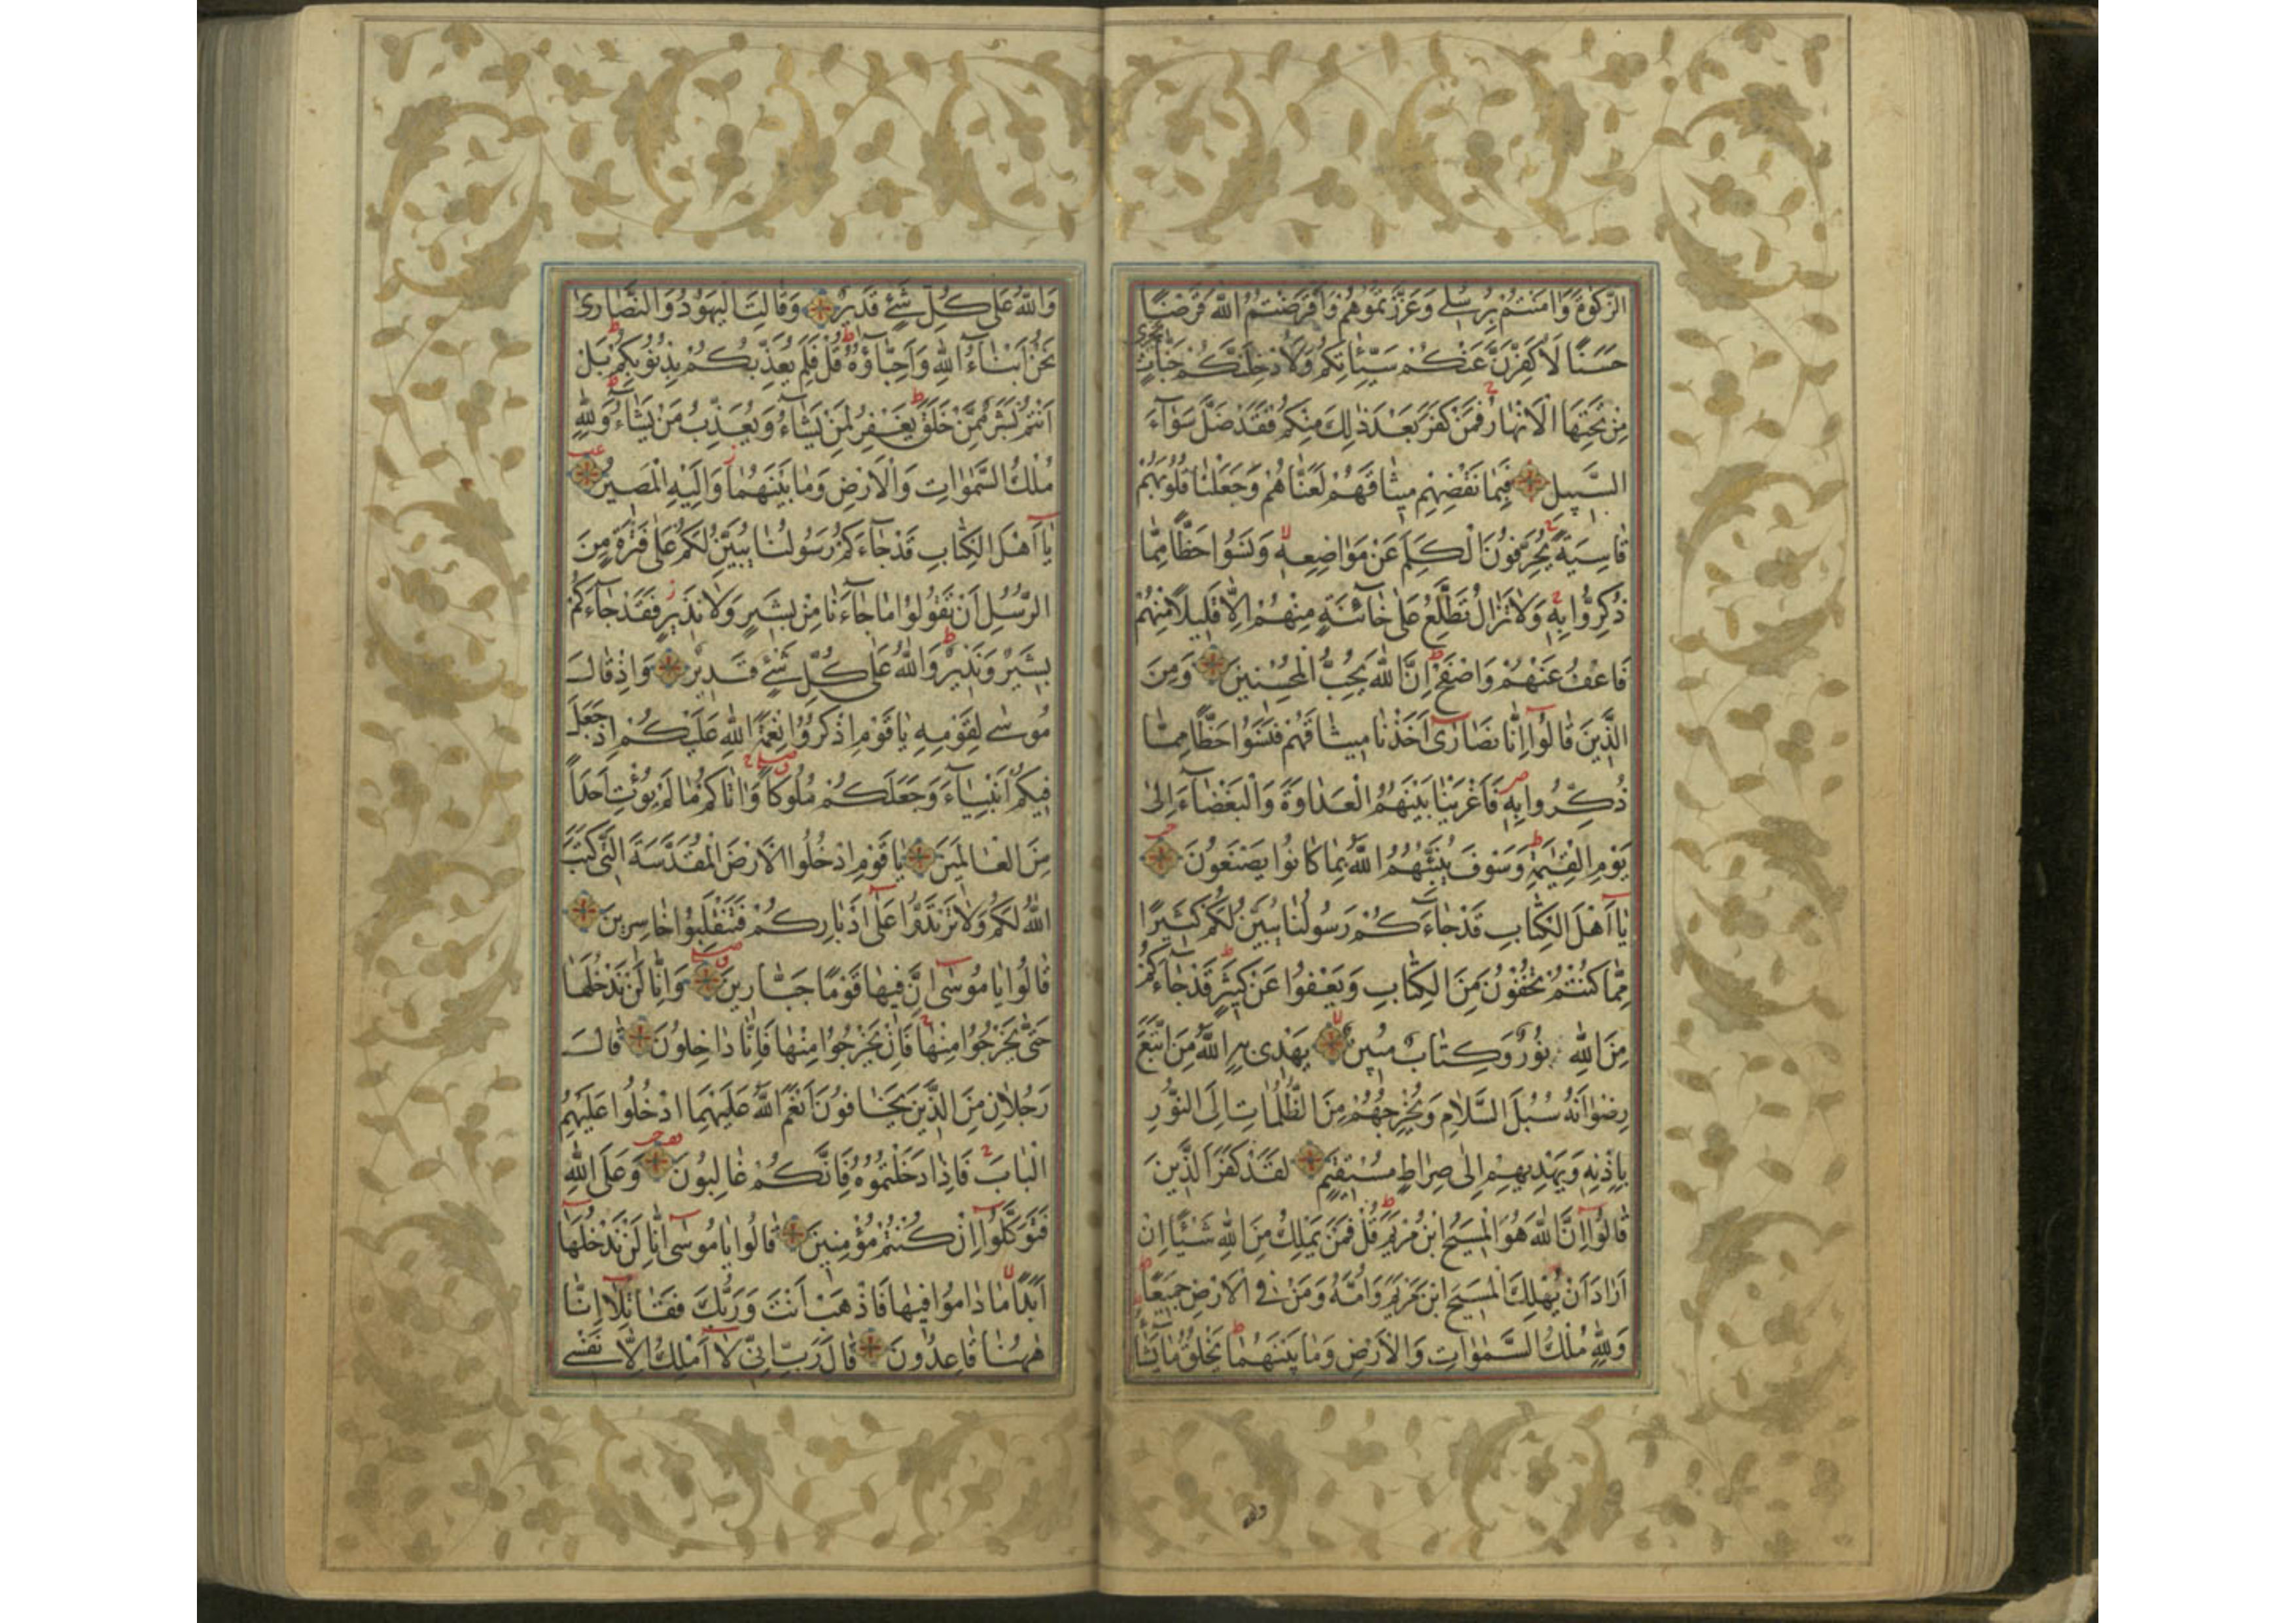 الزَّكٰوةَ وَاٰمَنْتُمْ بِرُسُلِي وَعَزَّرْتُمُوهُمْ وَاَقْرَضْتُمُ اللّٰهَ قَرْضًا
حَسَنًا لَاُكَفِّرَنَّ عَنْكُمْ سَيِّئَاتِكُمْ وَلَاُدْخِلَنَّكُمْ جَنَّاتٍ تَجْرِي
مِنْ تَحْتِهَا الْاَنْهَارُ فَمَنْ كَفَرَ بَعْدَ ذٰلِكَ مِنْكُمْ فَقَدْ ضَلَّ سَوَآءَ
السَّبِيلِ فَبِمَا نَقْضِهِمْ مِيثَاقَهُمْ لَعَنَّاهُمْ وَجَعَلْنَا قُلُوبَهُمْ
قَاسِيَةً يُحَرِّفُونَ الْكَلِمَ عَنْ مَوَاضِعِهٖ وَنَسُوا حَظًّا مِمَّا
ذُكِّرُوا بِهٖ وَلَا تَزَالُ تَطَّلِعُ عَلٰى خَآئِنَةٍ مِنْهُمْ اِلَّا قَلِيلًا مِنْهُمْ
فَاعْفُ عَنْهُمْ وَاصْفَحْ اِنَّ اللّٰهَ يُحِبُّ الْمُحْسِنِينَ وَمِنَ
الَّذِينَ قَالُوٓا اِنَّا نَصَارٰٓى اَخَذْنَا مِيثَاقَهُمْ فَنَسُوا حَظًّا مِمَّا
ذُكِّرُوا بِهٖ فَاَغْرَيْنَا بَيْنَهُمُ الْعَدَاوَةَ وَالْبَغْضَآءَ اِلٰى
يَوْمِ الْقِيٰمَةِ وَسَوْفَ يُنَبِّئُهُمُ اللّٰهُ بِمَا كَانُوا يَصْنَعُونَ
يَآ اَهْلَ الْكِتَابِ قَدْ جَآءَكُمْ رَسُولُنَا يُبَيِّنُ لَكُمْ كَثِيرًا
مِمَّا كُنْتُمْ تُخْفُونَ مِنَ الْكِتَابِ وَيَعْفُوا عَنْ كَثِيرٍ قَدْ جَآءَكُمْ
مِنَ اللّٰهِ نُورٌ وَكِتَابٌ مُبِينٌ يَهْدِي بِهِ اللّٰهُ مَنِ اتَّبَعَ
رِضْوَانَهُ سُبُلَ السَّلَامِ وَيُخْرِجُهُمْ مِنَ الظُّلُمَاتِ اِلَى النُّورِ
بِاِذْنِهٖ وَيَهْدِيهِمْ اِلٰى صِرَاطٍ مُسْتَقِيمٍ لَقَدْ كَفَرَ الَّذِينَ
قَالُوٓا اِنَّ اللّٰهَ هُوَ الْمَسِيحُ ابْنُ مَرْيَمَ قُلْ فَمَنْ يَمْلِكُ مِنَ اللّٰهِ شَيْئًا اِنْ
اَرَادَ اَنْ يُهْلِكَ الْمَسِيحَ ابْنَ مَرْيَمَ وَاُمَّهُ وَمَنْ فِي الْاَرْضِ جَمِيعًا
وَلِلّٰهِ مُلْكُ السَّمٰوَاتِ وَالْاَرْضِ وَمَا بَيْنَهُمَا يَخْلُقُ مَا يَشَآءُ
وَاللّٰهُ عَلٰى كُلِّ شَيْءٍ قَدِيرٌ وَقَالَتِ الْيَهُودُ وَالنَّصَارٰى
نَحْنُ اَبْنَآءُ اللّٰهِ وَاَحِبَّآؤُهُ قُلْ فَلِمَ يُعَذِّبُكُمْ بِذُنُوبِكُمْ بَلْ
اَنْتُمْ بَشَرٌ مِمَّنْ خَلَقَ يَغْفِرُ لِمَنْ يَشَآءُ وَيُعَذِّبُ مَنْ يَشَآءُ وَلِلّٰهِ
مُلْكُ السَّمٰوَاتِ وَالْاَرْضِ وَمَا بَيْنَهُمَا وَاِلَيْهِ الْمَصِيرُ
يَآ اَهْلَ الْكِتَابِ قَدْ جَآءَكُمْ رَسُولُنَا يُبَيِّنُ لَكُمْ عَلٰى فَتْرَةٍ مِنَ
الرُّسُلِ اَنْ تَقُولُوا مَا جَآءَنَا مِنْ بَشِيرٍ وَلَا نَذِيرٍ فَقَدْ جَآءَكُمْ
بَشِيرٌ وَنَذِيرٌ وَاللّٰهُ عَلٰى كُلِّ شَيْءٍ قَدِيرٌ وَاِذْ قَالَ
مُوسٰى لِقَوْمِهٖ يَا قَوْمِ اذْكُرُوا نِعْمَةَ اللّٰهِ عَلَيْكُمْ اِذْ جَعَلَ
فِيكُمْ اَنْبِيَآءَ وَجَعَلَكُمْ مُلُوكًا وَاٰتَاكُمْ مَا لَمْ يُؤْتِ اَحَدًا
مِنَ الْعَالَمِينَ يَا قَوْمِ ادْخُلُوا الْاَرْضَ الْمُقَدَّسَةَ الَّتِي كَتَبَ
اللّٰهُ لَكُمْ وَلَا تَرْتَدُّوا عَلٰٓى اَدْبَارِكُمْ فَتَنْقَلِبُوا خَاسِرِينَ
قَالُوا يَا مُوسٰٓى اِنَّ فِيهَا قَوْمًا جَبَّارِينَ وَاِنَّا لَنْ نَدْخُلَهَا
حَتّٰى يَخْرُجُوا مِنْهَا فَاِنْ يَخْرُجُوا مِنْهَا فَاِنَّا دَاخِلُونَ قَالَ
رَجُلَانِ مِنَ الَّذِينَ يَخَافُونَ اَنْعَمَ اللّٰهُ عَلَيْهِمَا ادْخُلُوا عَلَيْهِمُ
الْبَابَ فَاِذَا دَخَلْتُمُوهُ فَاِنَّكُمْ غَالِبُونَ وَعَلَى اللّٰهِ
فَتَوَكَّلُوٓا اِنْ كُنْتُمْ مُؤْمِنِينَ قَالُوا يَا مُوسٰٓى اِنَّا لَنْ نَدْخُلَهَآ
اَبَدًا مَا دَامُوا فِيهَا فَاذْهَبْ اَنْتَ وَرَبُّكَ فَقَاتِلَآ اِنَّا
هٰهُنَا قَاعِدُونَ قَالَ رَبِّ اِنِّي لَآ اَمْلِكُ اِلَّا نَفْسِي